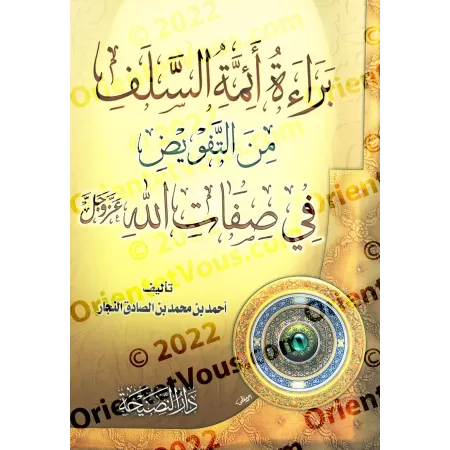 بَرَاءَةُ أَئِمَّةِ السَّلَفِ
مِنَ التَّفْوِيْضِ
فِي صِفَاتِ اللهِ عَزَّ وَجَلَّ
تأليف
أحمد بن محمد بن الصادق النجار
دَارُ النَّصِيْحَة
OrientVous.com
© 2022